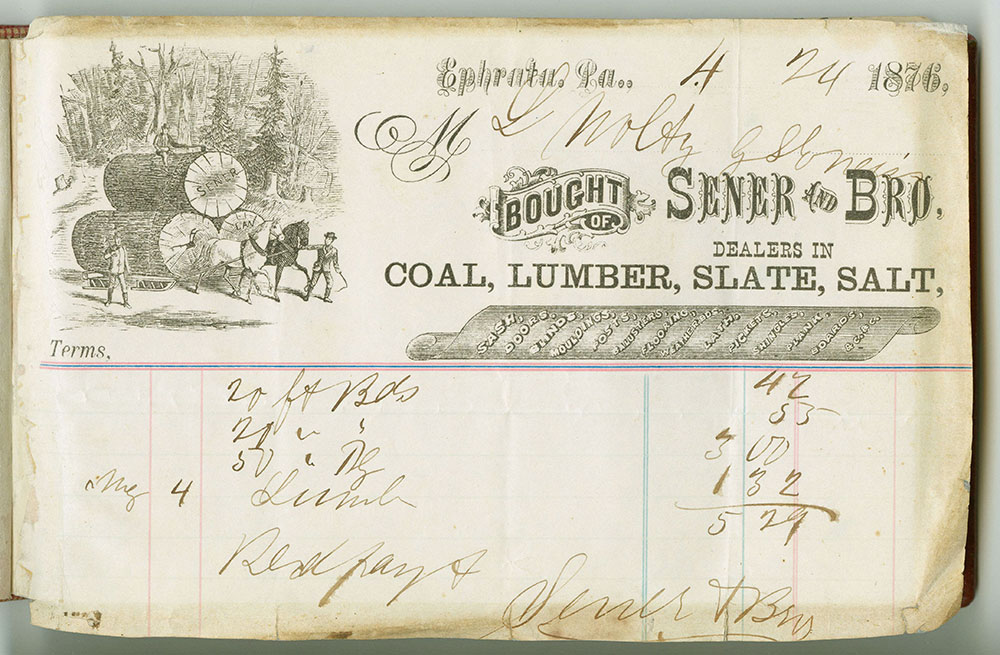 Ephrata, Pa., 4 24 1876,
M L Nolty
BOUGHT OF SENER AND BRO,
SENER
DEALERS IN
COAL, LUMBER, SLATE, SALT,
SASH, DOORS, BLINDS, MOULDINGS, POSTS, BALUSTERS, FLOORING, WEATHERBDS, LATH, PICKETS, SHINGLES, PLANK, BOARDS, &C. &C.
Terms,
20 ft Bds 42
20 " " 55
50 " 3 00
4 Lumb 1 32
5 29
Recd payt
Sener & Bro